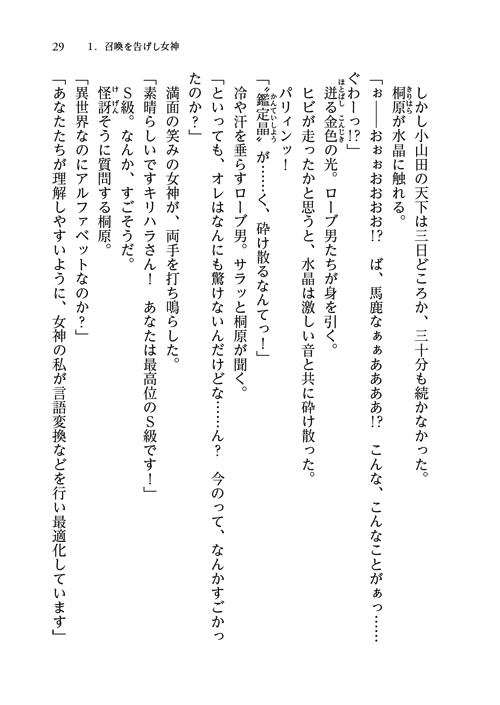 29　1．召喚を告げし女神
しかし小山田の天下は三日どころか、三十分も続かなかった。
桐原が水晶に触れる。
「ぉ――おぉぉおおおお!?　ば、馬鹿なぁぁああああ!?　こんな、こんなことがぁっ……
ぐわーっ!?」
迸る金色の光。ローブ男たちが身を引く。
ヒビが走ったかと思うと、水晶は激しい音と共に砕け散った。
パリィンッ！
「〝鑑定晶〟が……く、砕け散るなんてっ！」
冷や汗を垂らすローブ男。サラッと桐原が聞く。
「といっても、オレはなんにも驚けないんだけどな……ん？　今のって、なんかすごかっ
たのか？」
満面の笑みの女神が、両手を打ち鳴らした。
「素晴らしいですキリハラさん！　あなたは最高位のS級です！」
S級。なんか、すごそうだ。
怪訝そうに質問する桐原。
「異世界なのにアルファベットなのか？」
「あなたたちが理解しやすいように、女神の私が言語変換などを行い最適化しています」